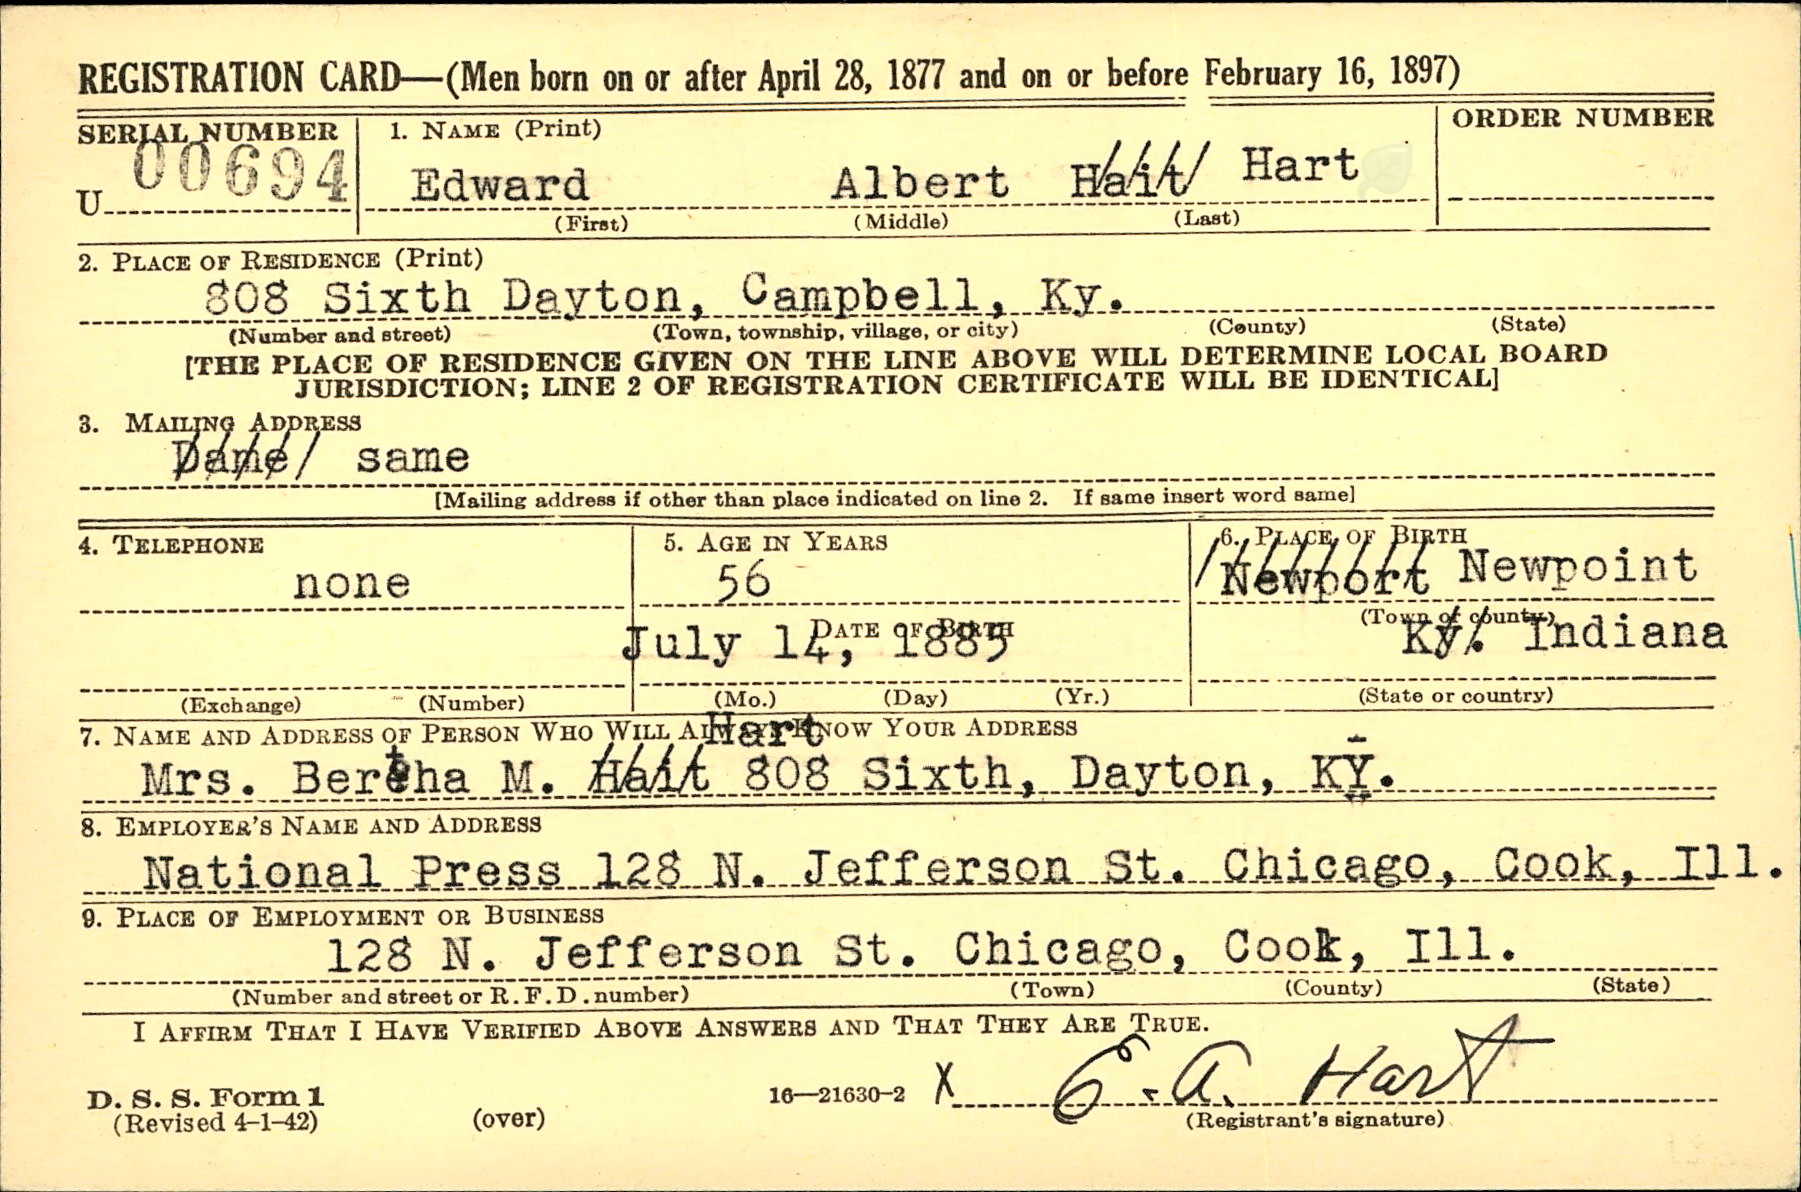 REGISTRATION CARD—(Men born on or after April 28, 1877 and on or before February 16, 1897)
SERIAL NUMBER 1. NAME (Print) ORDER NUMBER
U 00694 Edward Albert Hait Hart
(First) (Middle) (Last)
2. PLACE OF RESIDENCE (Print)
808 Sixth Dayton, Campbell, Ky.
(Number and street) (Town, township, village, or city) (County) (State)
[THE PLACE OF RESIDENCE GIVEN ON THE LINE ABOVE WILL DETERMINE LOCAL BOARD
JURISDICTION; LINE 2 OF REGISTRATION CERTIFICATE WILL BE IDENTICAL]
3. MAILING ADDRESS
Dame same
[Mailing address if other than place indicated on line 2. If same insert word same]
4. TELEPHONE 5. AGE IN YEARS 6. PLACE OF BIRTH
none 56 Newport Newpoint
(Town or county)
DATE OF BIRTH
July 14, 1885 Ky. Indiana
(Exchange) (Number) (Mo.) (Day) (Yr.) (State or country)
7. NAME AND ADDRESS OF PERSON WHO WILL ALWAYS KNOW YOUR ADDRESS
Hart
Mrs. Bertha M. Hait 808 Sixth, Dayton, KY.
8. EMPLOYER'S NAME AND ADDRESS
National Press 128 N. Jefferson St. Chicago, Cook, Ill.
9. PLACE OF EMPLOYMENT OR BUSINESS
128 N. Jefferson St. Chicago, Cook, Ill.
(Number and street or R. F. D. number) (Town) (County) (State)
I AFFIRM THAT I HAVE VERIFIED ABOVE ANSWERS AND THAT THEY ARE TRUE.
D. S. S. Form 1 16—21630-2 X E. A. Hart
(Revised 4-1-42) (over) (Registrant's signature)